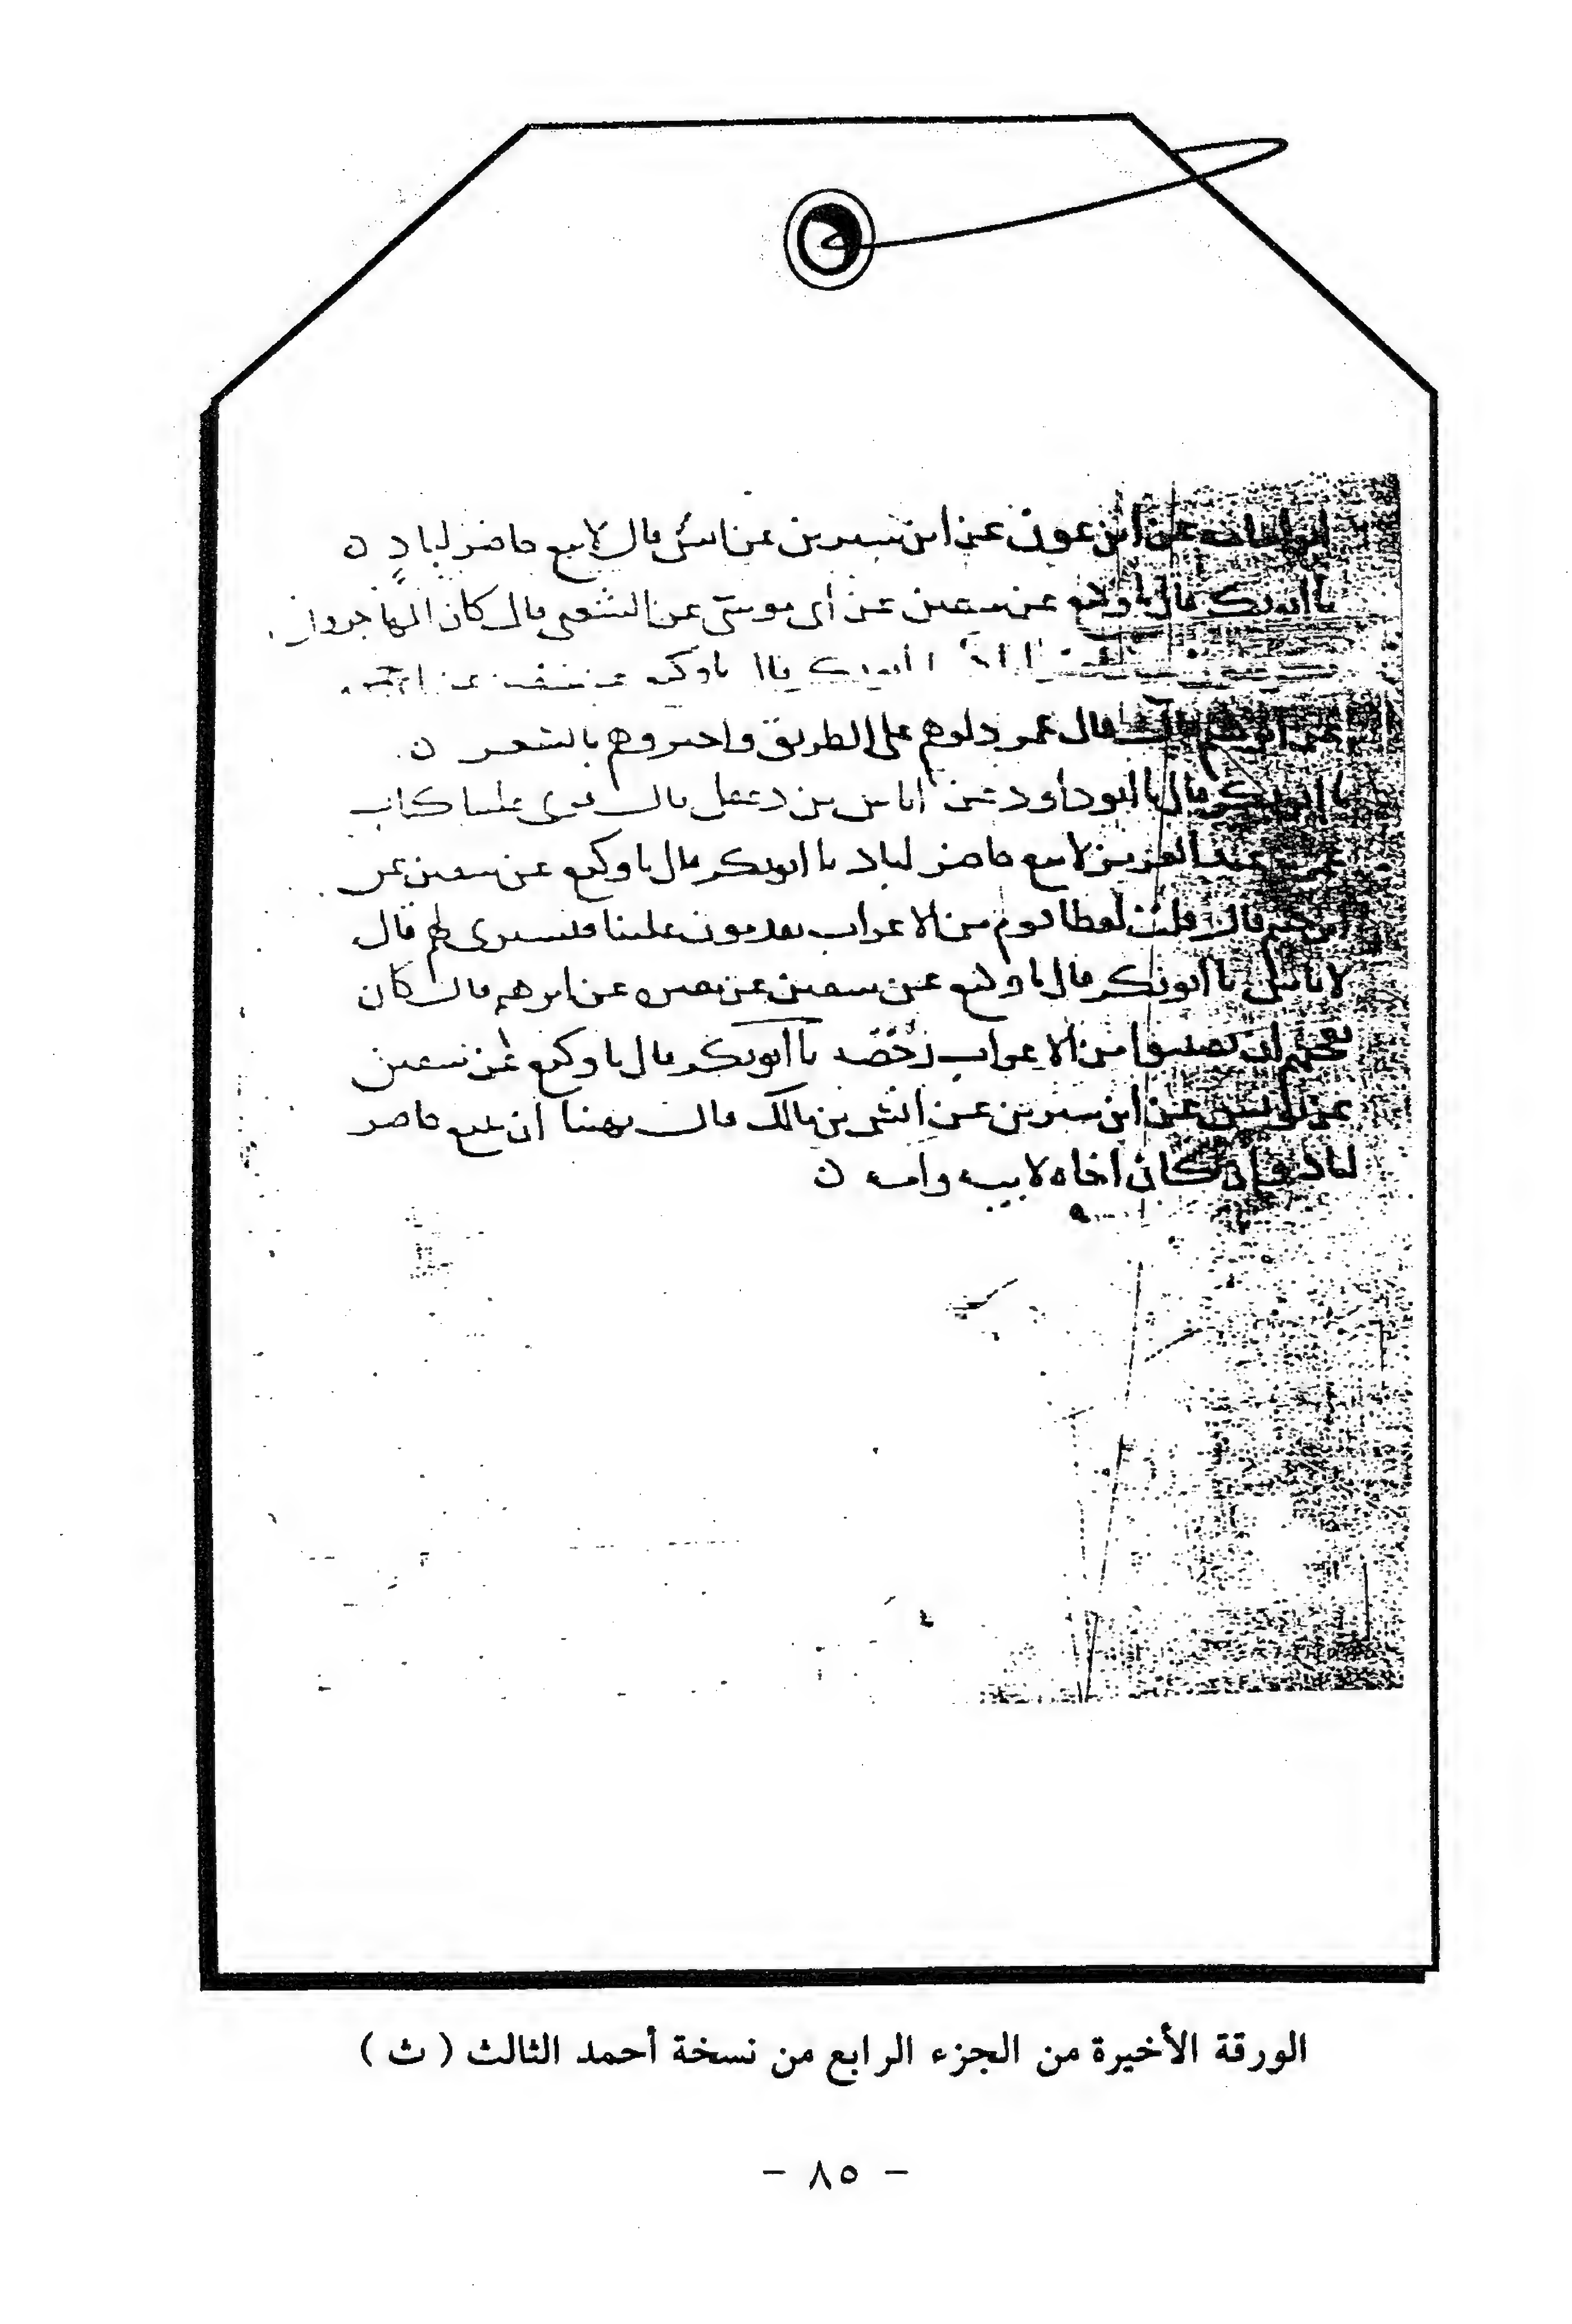 عن ابن عون عن ابن سيرين عن انس قال لا يبيع حاضر لباد ن
نا ابو بكر قال نا وكيع عن سفين عن ابى موسى عن الشعبى قال كان المهاجرون
ابو بكر قال نا وكيع عن سفين عن
قال عمر دلوهم على الطريق واخبروهم بالسعر ن
نا ابو بكر قال نا ابو داود عن اياس بن دغفل قال قرى علينا كتاب
عمر بن عبد العزيز لا يبيع حاضر لباد نا ابو بكر قال نا وكيع عن سفين عن
قال قلت لعطا قوم من الاعراب يقدمون علينا فنشترى لهم قال
لا باس نا ابو بكر قال نا وكيع عن سفين عن مغيره عن ابرهيم قال كان
يعجبهم ان يصيبوا من الاعراب رخصه نا ابو بكر قال نا وكيع عن سفين
عن يونس عن ابن سيرين عن انس بن مالك قال نهينا ان يبيع حاضر
لباد وان كان اخاه لابيه وامه ن
الورقة الأخيرة من الجزء الرابع من نسخة أحمد الثالث ( ث )
- ٨٥ -